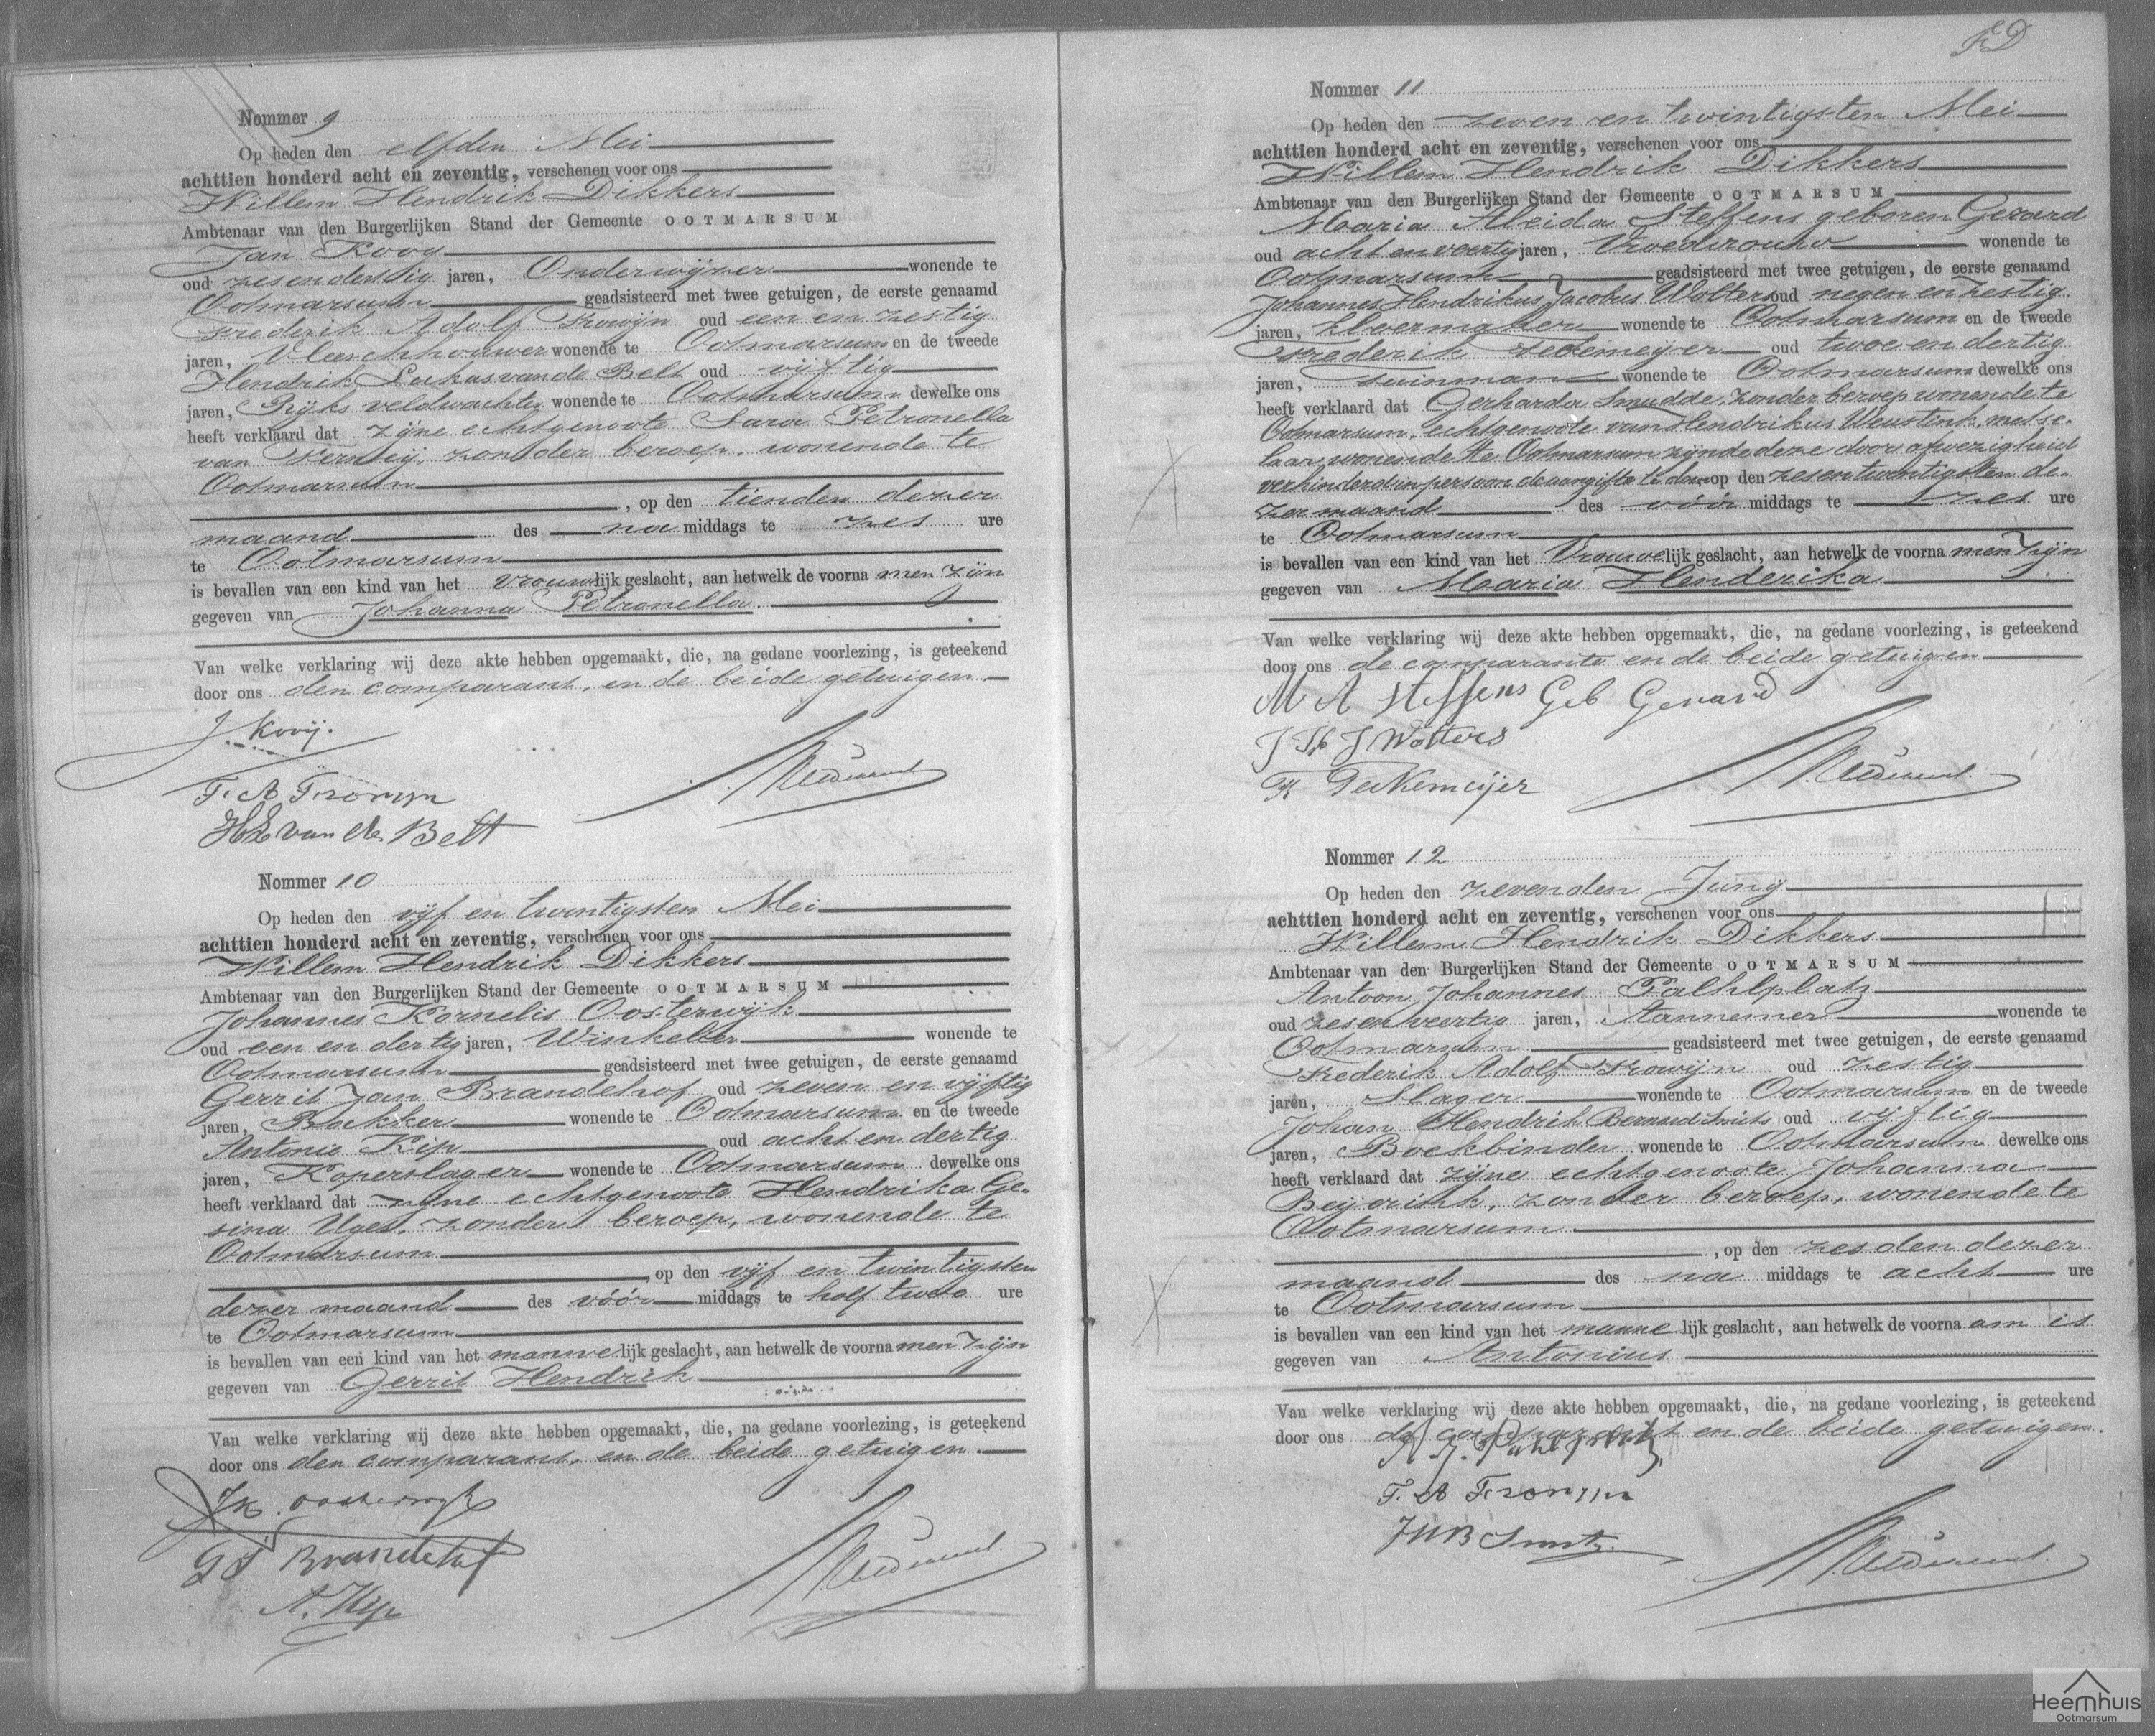 Nommer 9
Op heden den elfden Mei
achttien honderd acht en zeventig, verschenen voor ons
Willem Hendrik Dikkers
Ambtenaar van den Burgerlijken Stand der Gemeente OOTMARSUM
Jan Kooy
oud zesendertig jaren, Onderwijzer wonende te
Ootmarsum geadsisteerd met twee getuigen, de eerste genaamd
Frederik Adolf Frowijn oud een en zestig
jaren, Vleeschhouwer wonende te Ootmarsum en de tweede
Hendrik Lukas van de Belt oud vijftig
jaren, Rijks veldwachter wonende te Ootmarsum dewelke ons
heeft verklaard dat zijne echtgenoote Sara Petronella
van zonder beroep, wonende te
Ootmarsum
, op den tienden dezer
maand des na middags te zes ure
te Ootmarsum
is bevallen van een kind van het vrouwelijk geslacht, aan hetwelk de voorna men zijn
gegeven van Johanna Petronella
Van welke verklaring wij deze akte hebben opgemaakt, die, na gedane voorlezing, is geteekend
door ons den comparant, en de beide getuigen
J Kooij.
F. A Frowijn
H L van de Belt
Nommer 10
Op heden den vijf en twintigsten Mei
achttien honderd acht en zeventig, verschenen voor ons
Willem Hendrik Dikkers
Ambtenaar van den Burgerlijken Stand der Gemeente OOTMARSUM
Johannes Kornelis Oosterwijk
oud een en dertig jaren, Winkelier wonende te
Ootmarsum geadsisteerd met twee getuigen, de eerste genaamd
Gerrit Jan Brandehof oud zeven en vijftig
jaren, Bakker wonende te Ootmarsum en de tweede
Antonie Kip oud acht en dertig
jaren, Koperslager wonende te Ootmarsum dewelke ons
heeft verklaard dat zijne echtgenoote Hendrika Ge-
sina Uges, zonder beroep, wonende te
Ootmarsum
, op den vijf en twintigsten
dezer maand des vóór middags te half twee ure
te Ootmarsum
is bevallen van een kind van het mannelijk geslacht, aan hetwelk de voorna men zijn
gegeven van Gerrit Hendrik
Van welke verklaring wij deze akte hebben opgemaakt, die, na gedane voorlezing, is geteekend
door ons den comparant, en de beide getuigen.
JK. Oosterwijk
G J Brandehof
A. Kip
FD
Nommer 11
Op heden den zeven en twintigsten Mei
achttien honderd acht en zeventig, verschenen voor ons
Willem Hendrik Dikkers
Ambtenaar van den Burgerlijken Stand der Gemeente OOTMARSUM
Maria Aleida Steffens geboren Gerard
oud acht en veertig jaren, Vroedvrouw wonende te
Ootmarsum geadsisteerd met twee getuigen, de eerste genaamd
Johannes Hendrikus Jacobus Wolters oud negen en zestig
jaren, wonende te Ootmarsum en de tweede
Frederik Tedemeijer oud twee en dertig
jaren, Tuinman wonende te Ootmarsum dewelke ons
heeft verklaard dat Gerharda Smudde, zonder beroep wonende te
Ootmarsum, echtgenoote van Hendrikus Weustink, metse-
laar, wonende te Ootmarsum zijnde deze door afwezigheid
verhinderd in persoon de aangifte te doen op den zesentwintigsten de-
zer maand des vóór middags te zes ure
te Ootmarsum
is bevallen van een kind van het Vrouwelijk geslacht, aan hetwelk de voorna men zijn
gegeven van Maria Henderika
Van welke verklaring wij deze akte hebben opgemaakt, die, na gedane voorlezing, is geteekend
door ons de comparante en de beide getuigen
M A Steffens Geb Gerard
J H J Wolters
Nommer 12
Op heden den zevenden Junij
achttien honderd acht en zeventig, verschenen voor ons
Willem Hendrik Dikkers
Ambtenaar van den Burgerlijken Stand der Gemeente OOTMARSUM
Antoon Johannes Pathlplatz
oud zes en veertig jaren, Aannemer wonende te
Ootmarsum geadsisteerd met twee getuigen, de eerste genaamd
Frederik Adolf Frowijn oud zestig
jaren, Slager wonende te Ootmarsum en de tweede
Johan Hendrik Bernard Smits oud vijftig
jaren, Boekbinder wonende te Ootmarsum dewelke ons
heeft verklaard dat zijne echtgenoote Johanna
Beijerink, zonder beroep, wonende te
Ootmarsum
, op den zesden dezer
maand des na middags te acht ure
te Ootmarsum
is bevallen van een kind van het mannelijk geslacht, aan hetwelk de voorna am is
gegeven van Antonius
Van welke verklaring wij deze akte hebben opgemaakt, die, na gedane voorlezing, is geteekend
door ons de comparant en de beide getuigen.
F. A Frowijn
JHB Smits
Heemhuis
Ootmarsum